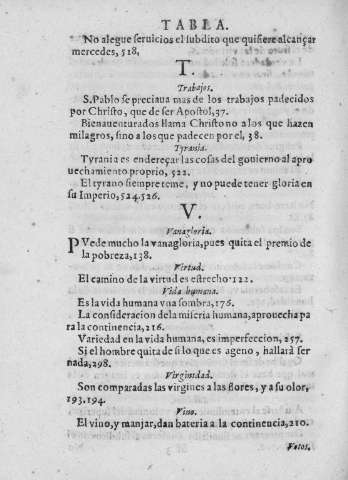 TABLA.
No alegue seruicios el subdito que quisiere alcançar
mercedes, 518,
T.
Trabajos.
S. Pablo se preciaua mas de los trabajos padecidos
por Christo, que de ser Apostol, 37.
Bienauenturados llama Christo no a los que hazen
milagros, sino a los que padecen por el, 38.
Tyrania.
Tyrania es endereçar las cosas del gouierno al apro
uechamiento proprio, 522.
El tyrano siempre teme, y no puede tener gloria en
su Imperio, 524. 526.
V.
Vanagloria.
PVede mucho la vanagloria, pues quita el premio de
la pobreza, 138.
Virtud.
El camino de la virtud es estrecho 122.
Vida humana.
Es la vida humana vna sombra, 176.
La consideracion de la miseria humana, aprouecha pa
ra la continencia, 216.
Variedad en la vida humana, es imperfeccion, 257.
Si el hombre quita de si lo que es ageno, hallarà ser
nada, 298.
Virginidad.
Son comparadas las virgines a las flores, y a su olor,
193. 194.
Vino.
El vino, y manjar, dan bateria a la continencia, 210.
Votos.